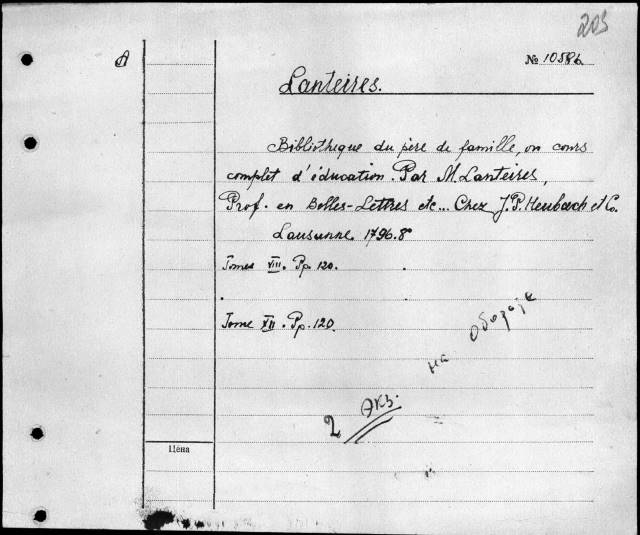 205
A
№ 10586.
Lanteires.
Bibliotheque du père de famille, ou cours
complet d'éducation. Par M. Lanteires,
Prof. en Belles-Lettres etc... Chez J. P. Heubach et Co.
Lausanne 1796. 8°
Tome VIII. Pp. 120.
Tome XII. Pp. 120.
на обороте
2 экз.
Цена